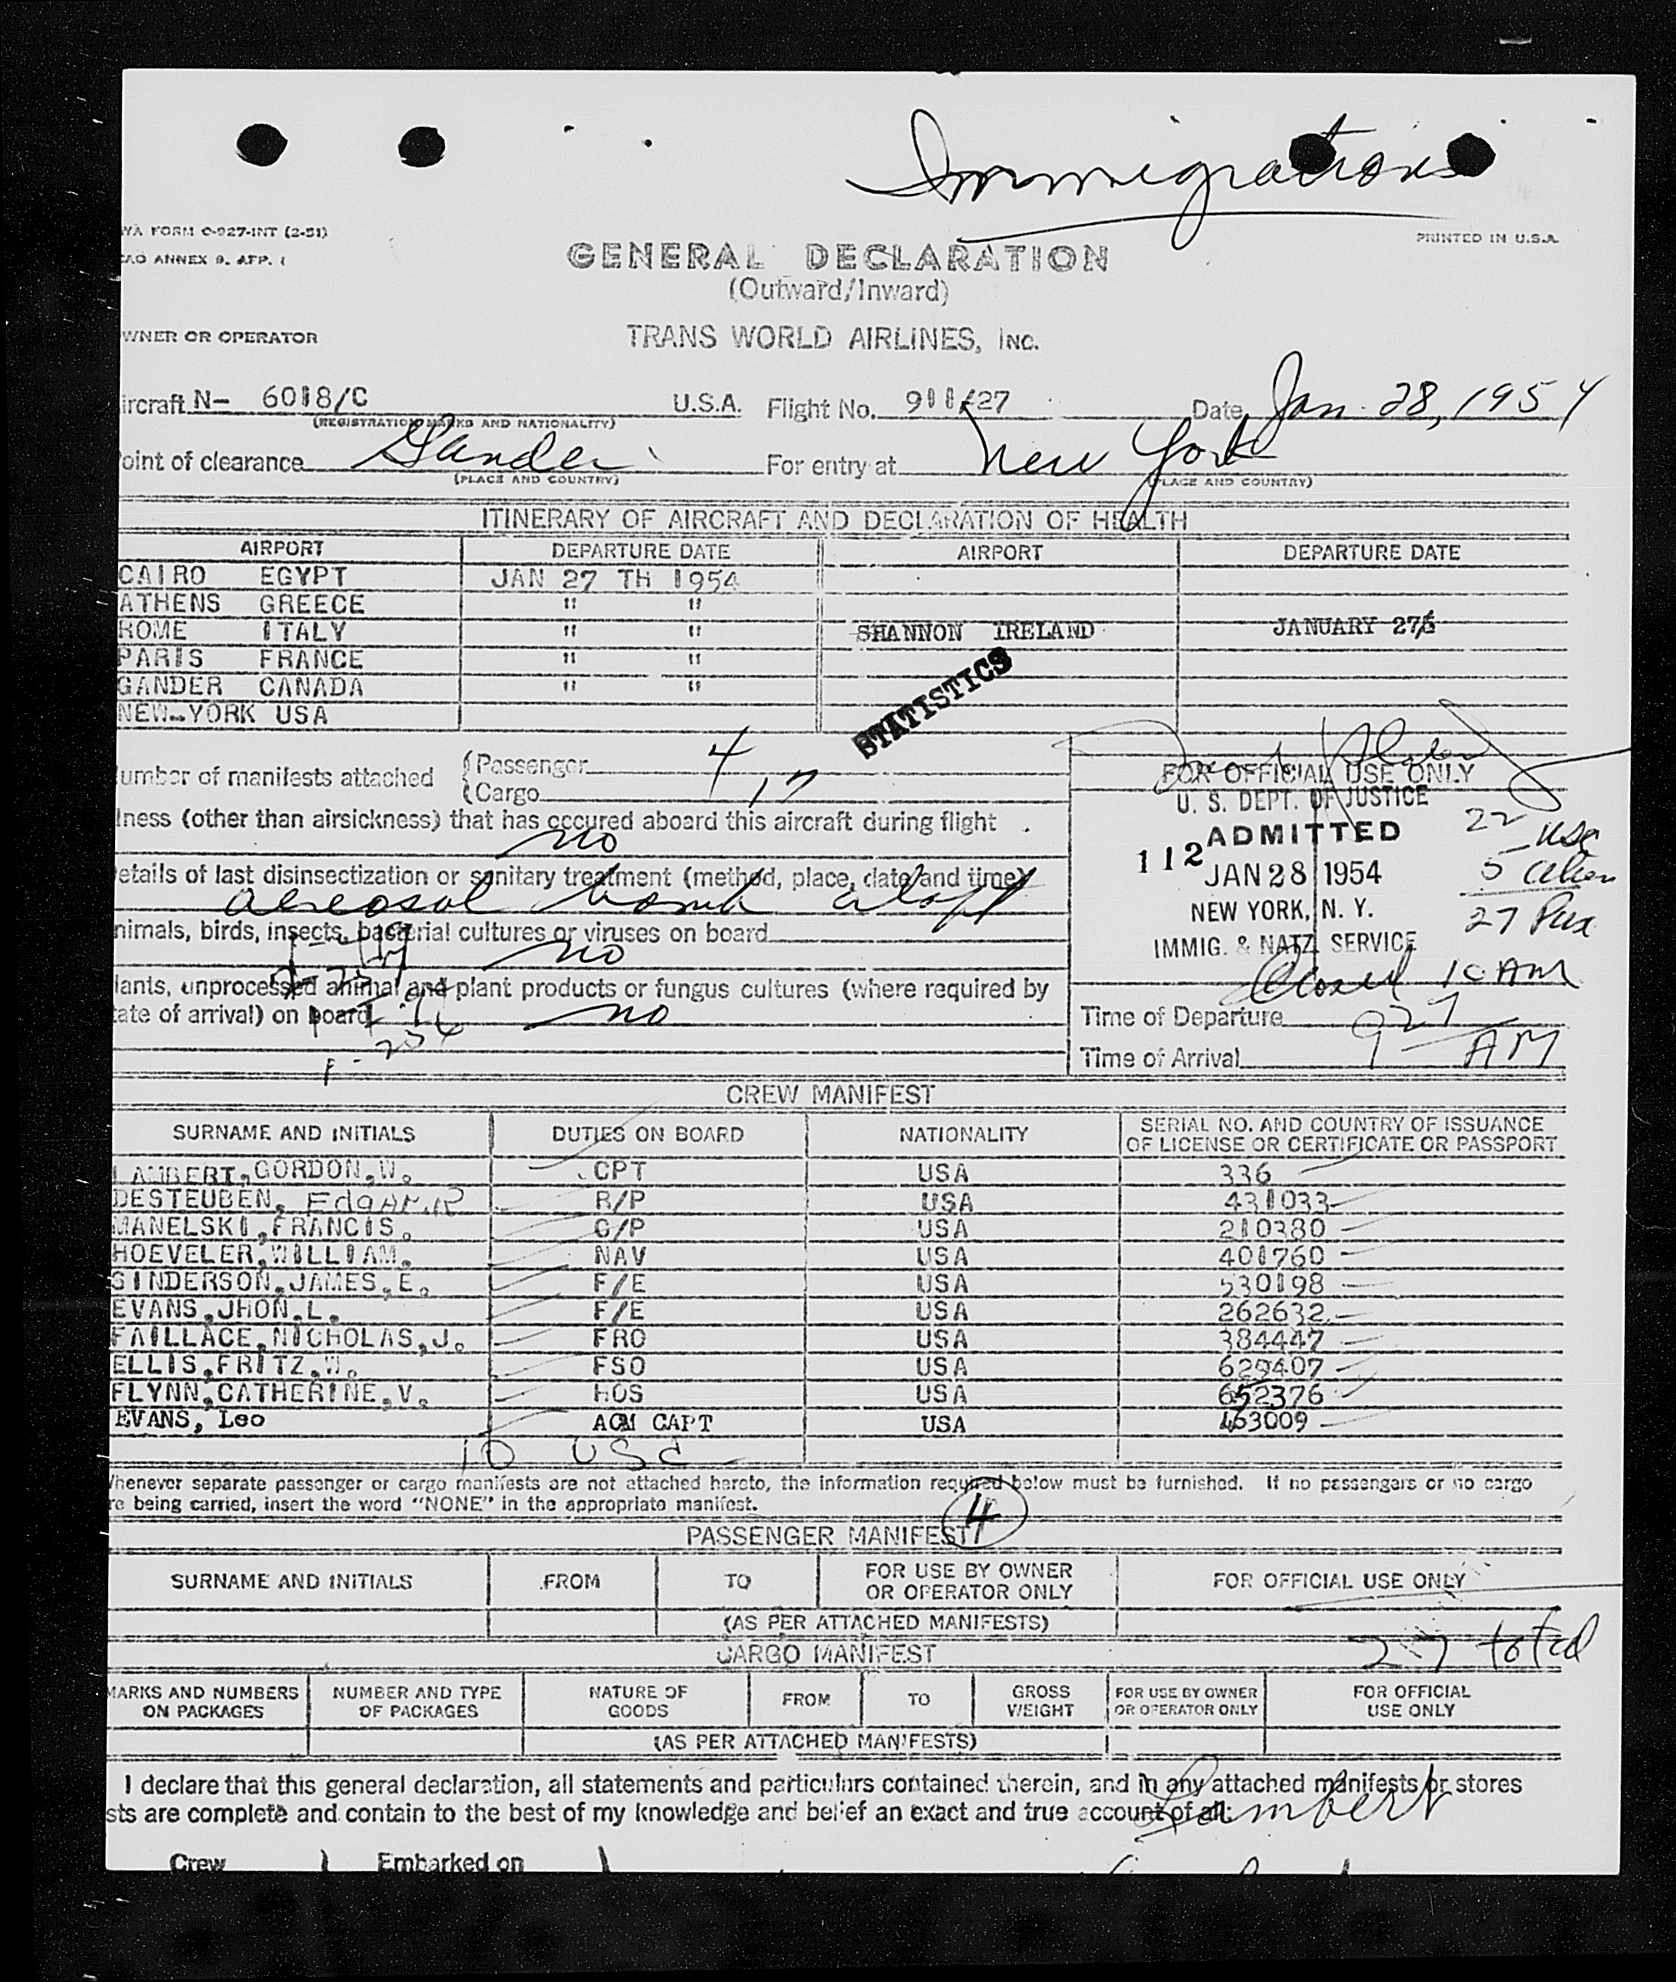 Immigrations
WA FORM C-927-INT (2-51)
CAO ANNEX 9. APP. 1
PRINTED IN U.S.A.
GENERAL DECLARATION
(Outward/Inward)
WNER OR OPERATOR
TRANS WORLD AIRLINES, INC.
ircraft N- 6018/C U.S.A. Flight No. 911/27 Date Jan. 28, 1954
(REGISTRATION MARKS AND NATIONALITY)
oint of clearance Gander For entry at New York
(PLACE AND COUNTRY) (PLACE AND COUNTRY)
ITINERARY OF AIRCRAFT AND DECLARATION OF HEALTH
AIRPORT DEPARTURE DATE AIRPORT DEPARTURE DATE
CAIRO EGYPT JAN 27 TH 1954
ATHENS GREECE " "
ROME ITALY " " SHANNON IRELAND JANUARY 27
PARIS FRANCE " "
GANDER CANADA " "
NEW-YORK USA
STATISTICS
umber of manifests attached (Passenger 4
(Cargo 17
FOR OFFICIAL USE ONLY
U. S. DEPT. OF JUSTICE
ADMITTED
112
JAN 28 1954
NEW YORK, N. Y.
IMMIG. & NATZ. SERVICE
22 USC
5 alien
27 Pax
Closed 10 AM
lness (other than airsickness) that has occured aboard this aircraft during flight
no
etails of last disinsectization or sanitary treatment (method, place, date and time)
aereosol bomb aloft
nimals, birds, insects, bacterial cultures or viruses on board
no
lants, unprocessed animal and plant products or fungus cultures (where required by
tate of arrival) on board no
Time of Departure
Time of Arrival 927 AM
CREW MANIFEST
SURNAME AND INITIALS DUTIES ON BOARD NATIONALITY SERIAL NO. AND COUNTRY OF ISSUANCE
OF LICENSE OR CERTIFICATE OR PASSPORT
LAMBERT,GORDON,W. CPT USA 336
DESTEUBEN, EdgAR.R R/P USA 431033
MANELSKI,FRANCIS. O/P USA 210380
HOEVELER,WILLIAM. NAV USA 401760
SINDERSON,JAMES,E. F/E USA 530198
EVANS,JHON.L. F/E USA 262632
FAILLACE,NICHOLAS,J. FRO USA 384447
ELLIS,FRITZ,W. FSO USA 629407
FLYNN,CATHERINE,V. HOS USA 652376
EVANS, Leo ACM CAPT USA 463009
10 USC
henever separate passenger or cargo manifests are not attached hereto, the information required below must be furnished. If no passengers or no cargo
re being carried, insert the word "NONE" in the appropriate manifest.
4
PASSENGER MANIFEST
SURNAME AND INITIALS FROM TO FOR USE BY OWNER OR OPERATOR ONLY FOR OFFICIAL USE ONLY
(AS PER ATTACHED MANIFESTS)
27 total
CARGO MANIFEST
MARKS AND NUMBERS ON PACKAGES NUMBER AND TYPE OF PACKAGES NATURE OF GOODS FROM TO GROSS WEIGHT FOR USE BY OWNER OR OPERATOR ONLY FOR OFFICIAL USE ONLY
(AS PER ATTACHED MANIFESTS)
I declare that this general declaration, all statements and particulars contained therein, and in any attached manifests or stores
sts are complete and contain to the best of my knowledge and belief an exact and true account of all:
Lambert
Crew ) Embarked on )